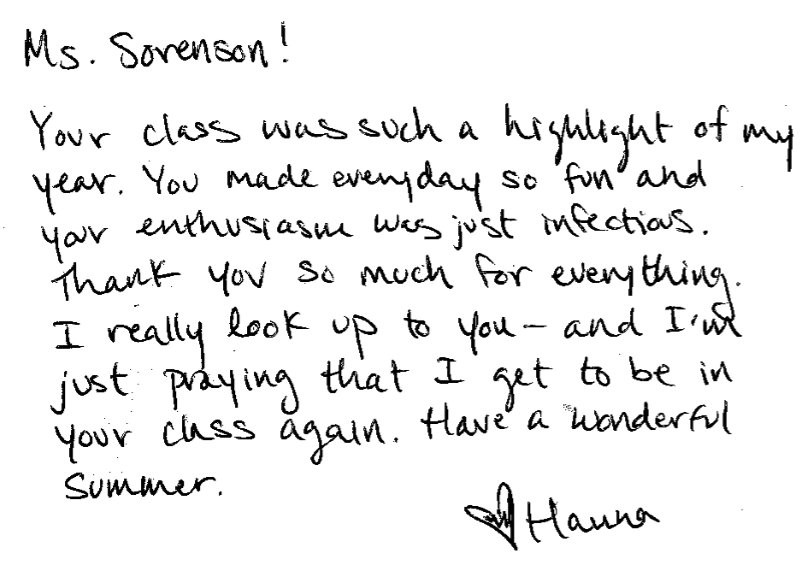 Ms. Sorenson!
Your class was such a highlight of my
year. You made everyday so fun and
your enthusiasm was just infectious.
Thank you so much for everything.
I really look up to you – and I'm
just praying that I get to be in
your class again. Have a wonderful
summer.
Hanna